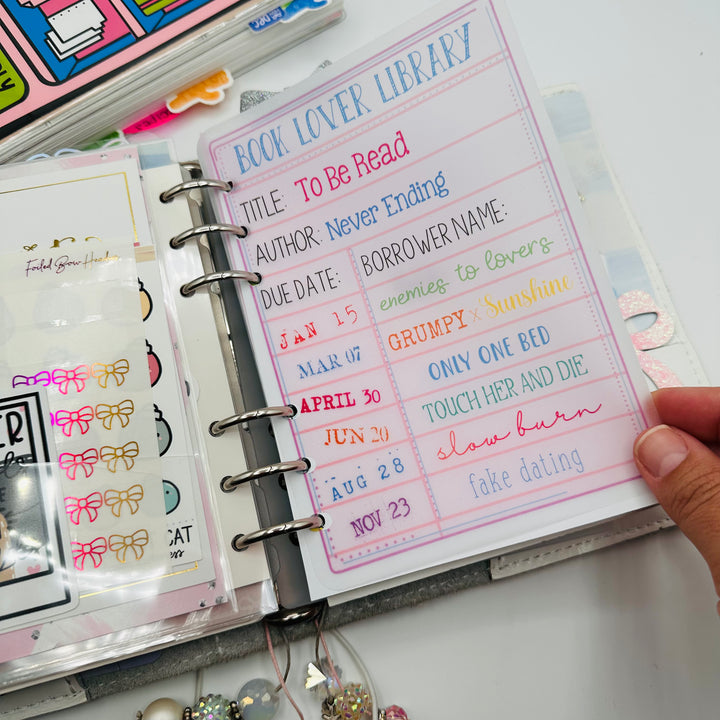 BOOK LOVER LIBRARY
TITLE: To Be Read
AUTHOR: Never Ending
DUE DATE: BORROWER NAME:
JAN 15 enemies to lovers
MAR 07 GRUMPY x Sunshine
APRIL 30 ONLY ONE BED
JUN 20 TOUCH HER AND DIE
AUG 28 slow burn
NOV 23 fake dating
Foiled Bow Headers
CAT